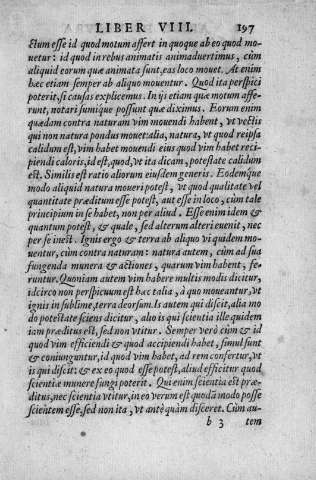 LIBER VIII. 197
ctum esse id quod motum affert in quoque ab eo quod mo-
uetur: id quod in rebus animatis animaduertimus, cùm
aliquid eorum quæ animata sunt, eas loco mouet. At enim
hæc etiam semper ab aliquo mouentur. Quod ita perspici
poterit, si causas explicemus. In ijs etiam quæ motum affe-
runt, notari sunt quæ diximus. Eorum enim
quædam contra naturam vim mouendi habent, vt vectis
qui non natura pondus mouet: alia, natura, vt quod reipsa
calidum est, vim habet mouendi eius quod vim habet reci-
piendi caloris, id est, quod, vt ita dicam, potestate calidum
est. Similis est ratio aliorum eiusdem generis. Eodemque
modo aliquid natura moueri potest, vt quod qualitate vel
quantitate præditum esse potest, aut esse in loco, cùm tale
principium in se habet, non per aliud. Esse enim idem &
quantum potest, & quale, sed alterum alteri euenit, nec
per se inest. Ignis ergo & terra ab aliquo vi quidem mo-
uentur, cùm contra naturam: natura autem, cùm ad sua
fungenda munera & actiones, quarum vim habent, fe-
runtur. Quoniam autem vim habere multis modis dicitur,
idcirco non perspicuum est hæc talia, à quo moueantur, vt
ignis in sublime, terra deorsum. Is autem qui discit, alia mo
do potestate sciens dicitur, alio is qui scientia ille quidem
iam præditus est, sed non vtitur. Semper verò cùm & id
quod vim efficiendi & quod accipiendi habet, simul sunt
& coniunguntur, id quod vim habet, ad rem confertur, vt
is qui discit: & ex eo quod esse potest, aliud efficitur quod
scientiæ munere fungi poterit. Qui enim scientia est præ-
ditus, nec scientia vtitur, in eo verum est quodā modo posse
scientem esse, sed non ita, vt antè quàm disceret. Cùm au-
b 3 tem